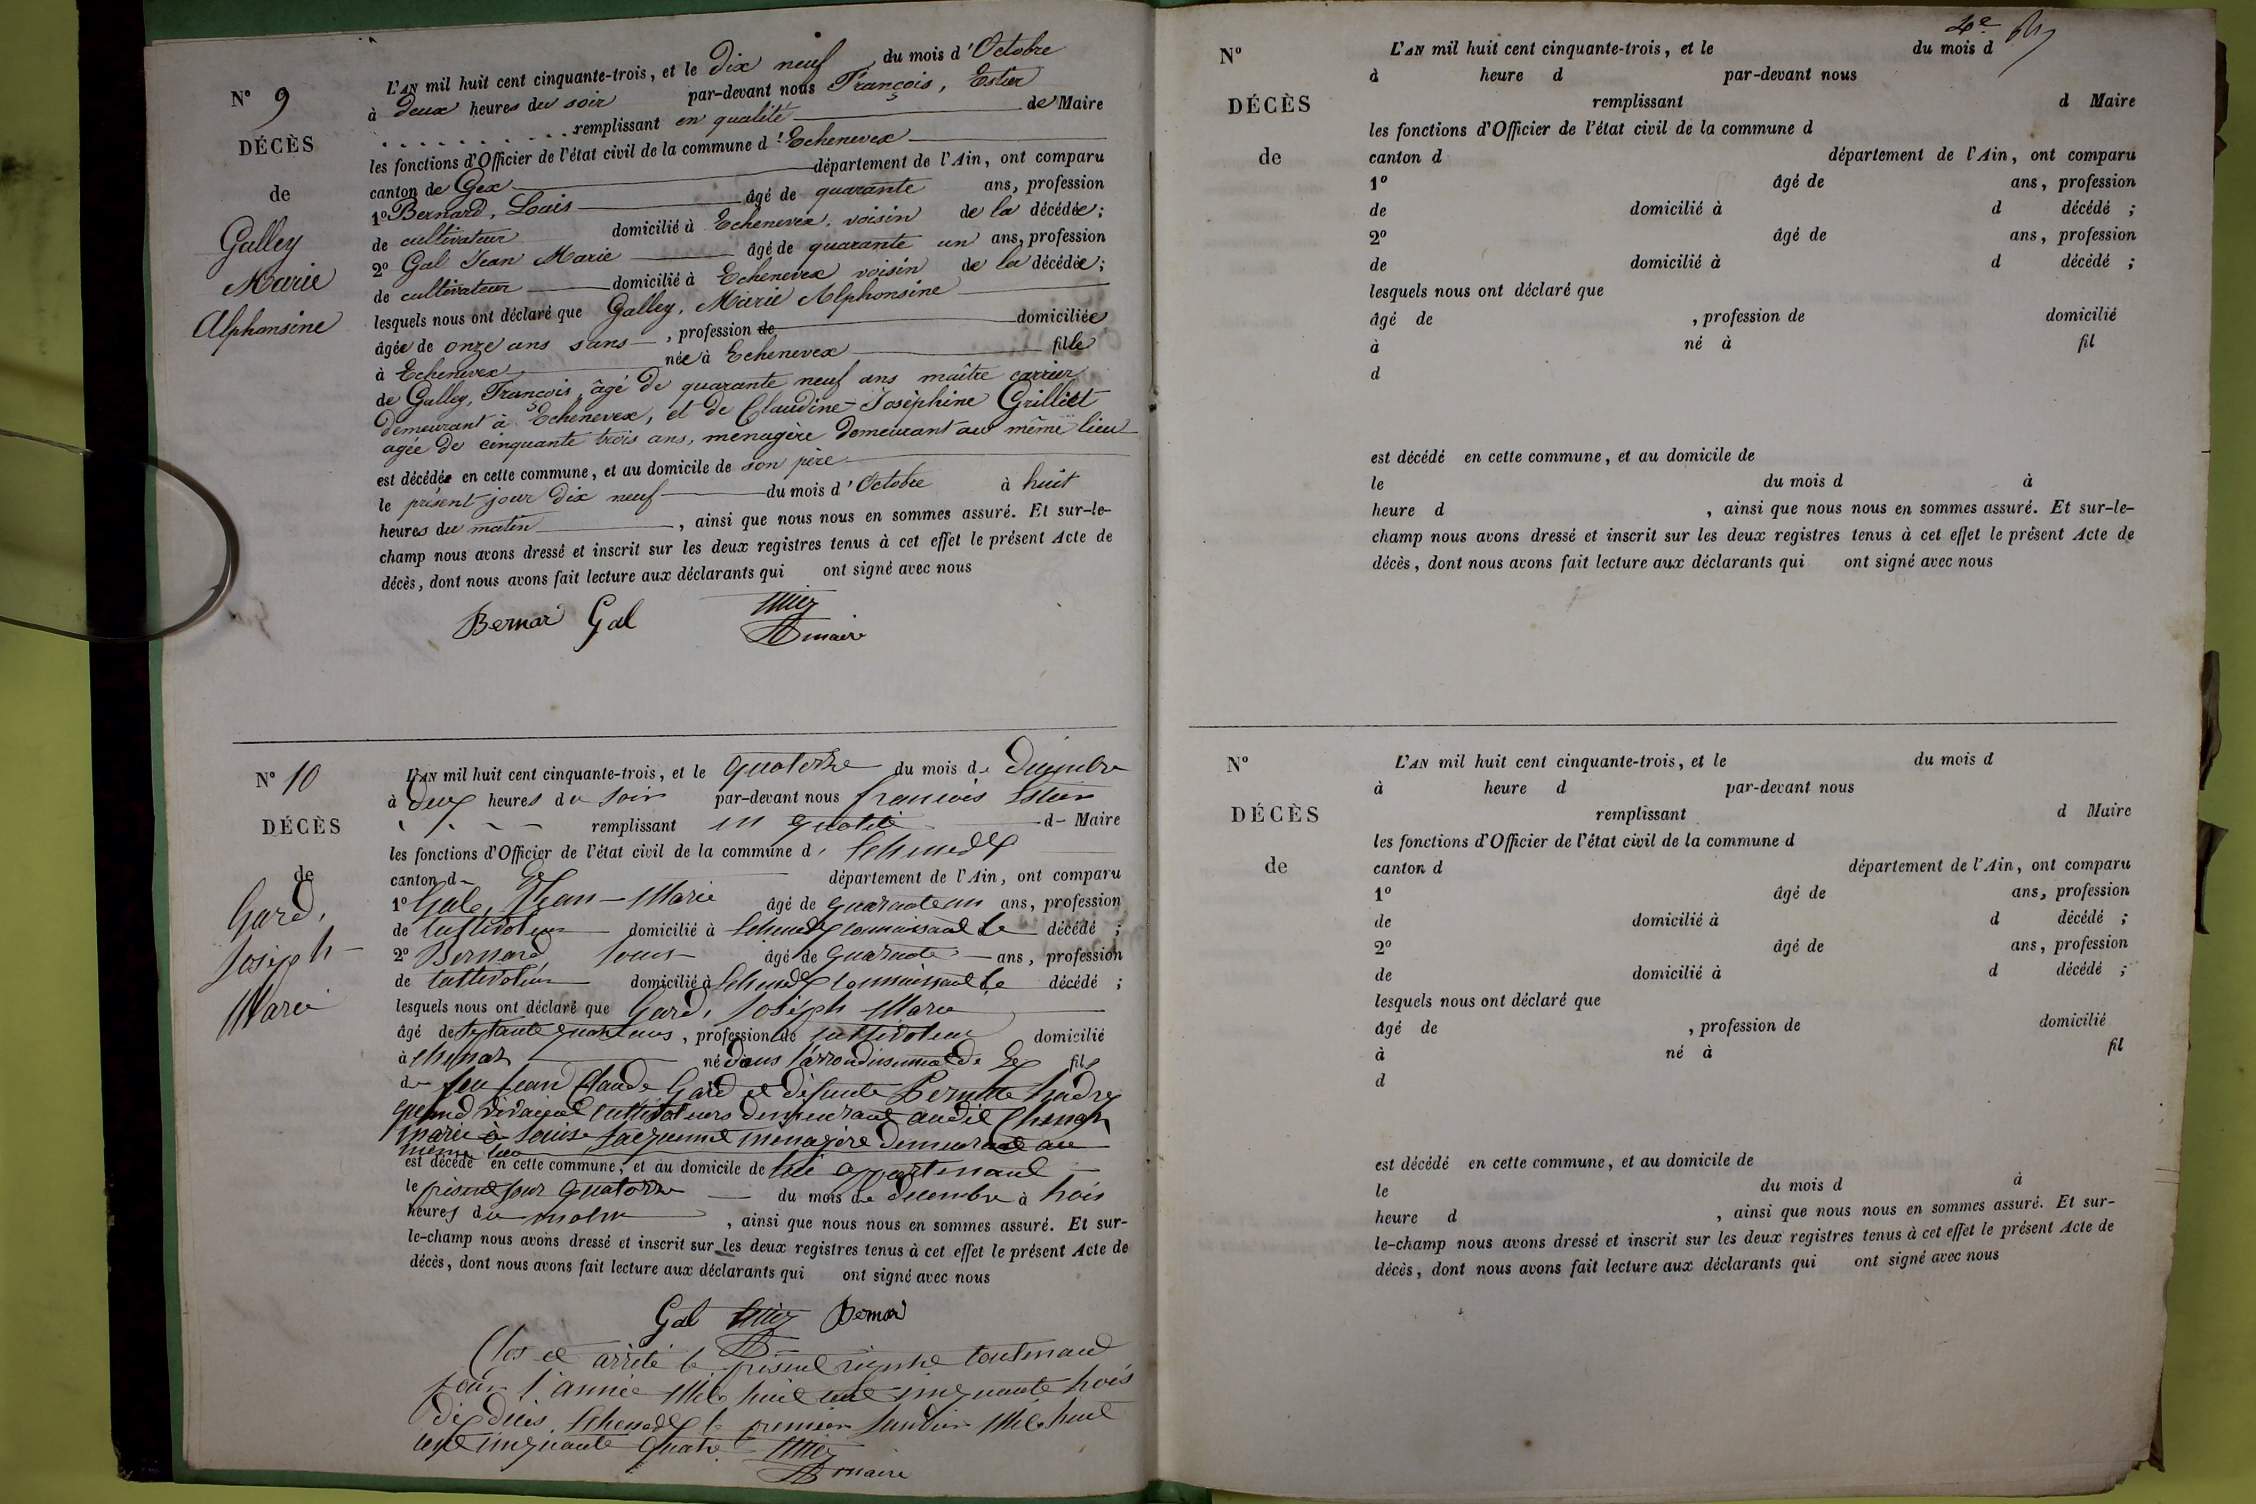 N° 9
DÉCÈS
de
Galley
Marie
Alphonsine
L'AN mil huit cent cinquante-trois, et le dix neuf du mois d'Octobre
à deux heures du soir par-devant nous François, Estier
remplissant en qualité de Maire
les fonctions d'Officier de l'état civil de la commune d'Echenevex
canton de Gex département de l'Ain, ont comparu
1° Bernard, Louis âgé de quarante ans, profession
de cultivateur domicilié à Echenevex, voisin de la décédée;
2° Gal Jean Marie âgé de quarante un ans, profession
de cultivateur domicilié à Echenevex voisin de la décédée;
lesquels nous ont déclaré que Galley, Marie Alphonsine
âgée de onze ans sans, profession de domiciliée
à Echenevex née à Echenevex fille
de Galley, François, âgé de quarante neuf ans maître carrier
demeurant à Echenevex, et de Claudine-Josèphine Grilliet
agée de cinquante trois ans, menagère demeurant au même lieu
est décédée en cette commune, et au domicile de son père
le présent jour dix neuf du mois d'Octobre à huit
heures du matin, ainsi que nous nous en sommes assuré. Et sur-le-
champ nous avons dressé et inscrit sur les deux registres tenus à cet effet le présent Acte de
décès, dont nous avons fait lecture aux déclarants qui ont signé avec nous
Bernar Gal
maire
N° 10
DÉCÈS
de
Gard,
Joseph
Marie
L'AN mil huit cent cinquante-trois, et le quatorze du mois de Decembre
à deux heures du soir par-devant nous françois Estier
remplissant en qualité d- Maire
les fonctions d'Officier de l'état civil de la commune d' Echenevex
canton d- Gex département de l'Ain, ont comparu
1° Gal, Jean-Marie âgé de quarante un ans, profession
de cultivateur domicilié à Echenevex connaissant le décédé;
2° Bernard, Louis âgé de quarante ans, profession
de cultivateur domicilié à Echenevex connaissant le décédé;
lesquels nous ont déclaré que Gard, Joséph Marie
âgé de septante quatre ans, profession de cultivateur domicilié
à Chenaz né dans l'arrondissement de Gex fils
de feu Jean Claude Gard et défunte Pernette
quand vivaient cultivateurs demeurant audit Chenaz
marié à Louise Jacquemet menagère demeurant au
même lieu
est décédé en cette commune, et au domicile de lui appartenant
le présent jour quatorze du mois de decembre à trois
heures du matin, ainsi que nous nous en sommes assuré. Et sur-
le-champ nous avons dressé et inscrit sur les deux registres tenus à cet effet le présent Acte de
décès, dont nous avons fait lecture aux déclarants qui ont signé avec nous
Gal Bernar
Clos et arrété le présent régistre contenant
pour l'année mil huit cent cinquante trois
dix décès. Echenevex le premier Janvier mil huit
cent cinquante quatre
maire
4e
N°
DÉCÈS
de
L'AN mil huit cent cinquante-trois, et le du mois d
à heure d par-devant nous
remplissant d Maire
les fonctions d'Officier de l'état civil de la commune d
canton d département de l'Ain, ont comparu
1° âgé de ans, profession
de domicilié à d décédé ;
2° âgé de ans, profession
de domicilié à d décédé ;
lesquels nous ont déclaré que
âgé de , profession de domicilié
à né à fil
d
est décédé en cette commune, et au domicile de
le du mois d à
heure d , ainsi que nous nous en sommes assuré. Et sur-le-
champ nous avons dressé et inscrit sur les deux registres tenus à cet effet le présent Acte de
décès, dont nous avons fait lecture aux déclarants qui ont signé avec nous
N°
DÉCÈS
de
L'AN mil huit cent cinquante-trois, et le du mois d
à heure d par-devant nous
remplissant d Maire
les fonctions d'Officier de l'état civil de la commune d
canton d département de l'Ain, ont comparu
1° âgé de ans, profession
de domicilié à d décédé ;
2° âgé de ans, profession
de domicilié à d décédé ;
lesquels nous ont déclaré que
âgé de , profession de domicilié
à né à fil
d
est décédé en cette commune, et au domicile de
le du mois d à
heure d , ainsi que nous nous en sommes assuré. Et sur-
le-champ nous avons dressé et inscrit sur les deux registres tenus à cet effet le présent Acte de
décès, dont nous avons fait lecture aux déclarants qui ont signé avec nous